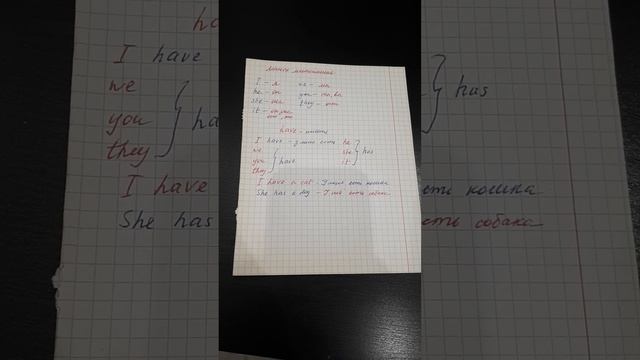 Личные местоимения
I - я we - мы
he - он you - ты, вы
she - она they - они
it - он, она
оно, это
have - иметь
I have - У меня есть he
we she has
you have it
they
I have a cat - У меня есть кошка
She has a dog - У неё есть собака
I have
we
you
they
has
I have
есть кошка
She has
есть собака